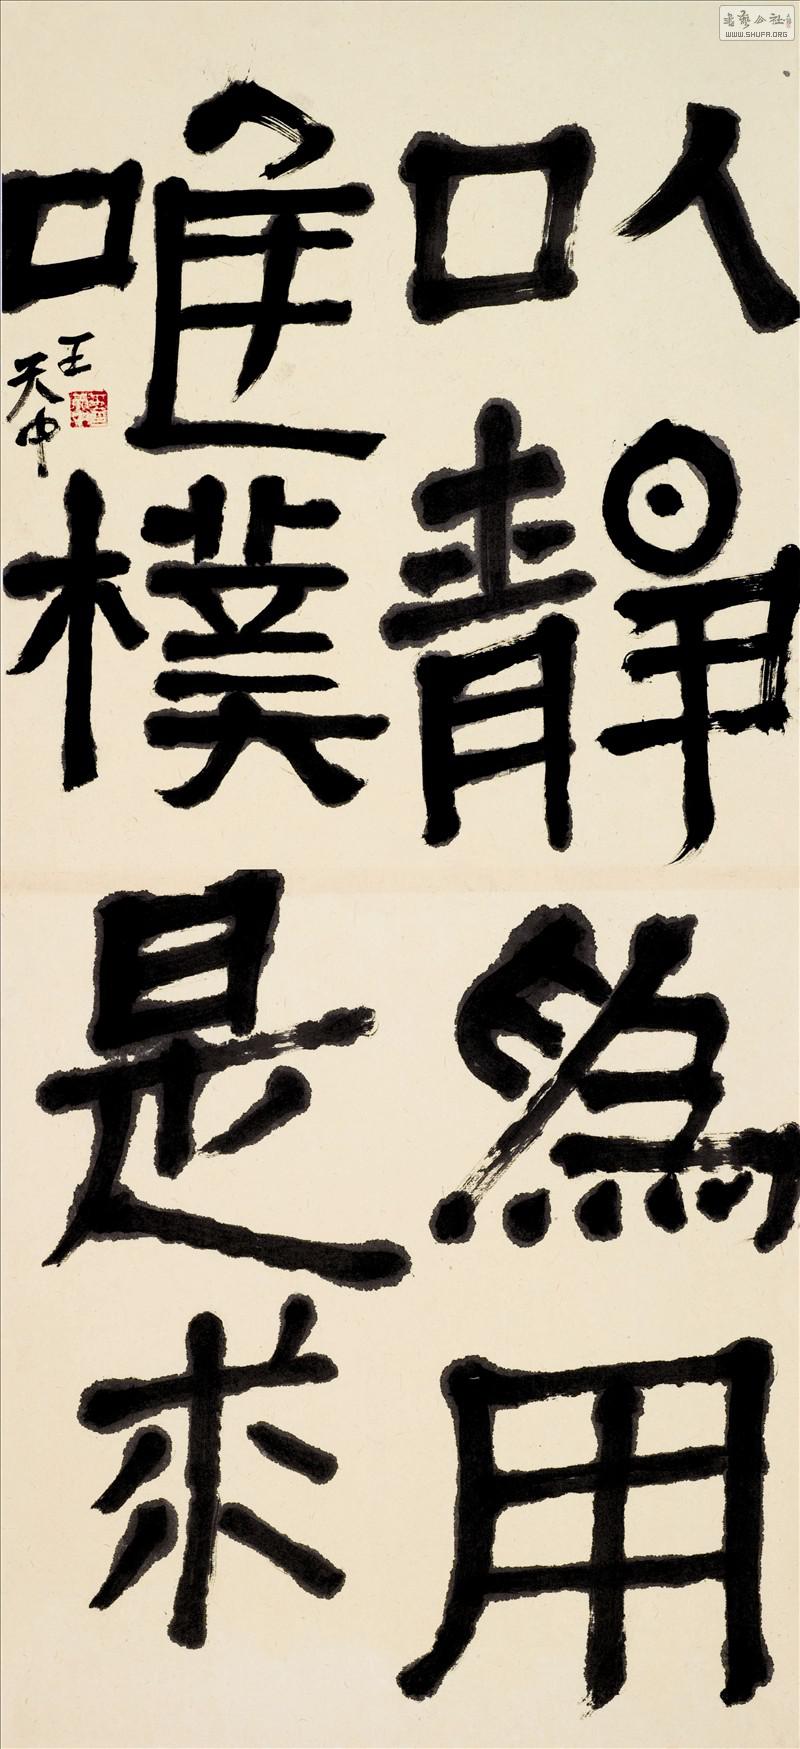 以靜為用
唯樸是求
王天中
書藝公社
WWW.SHUFA.ORG